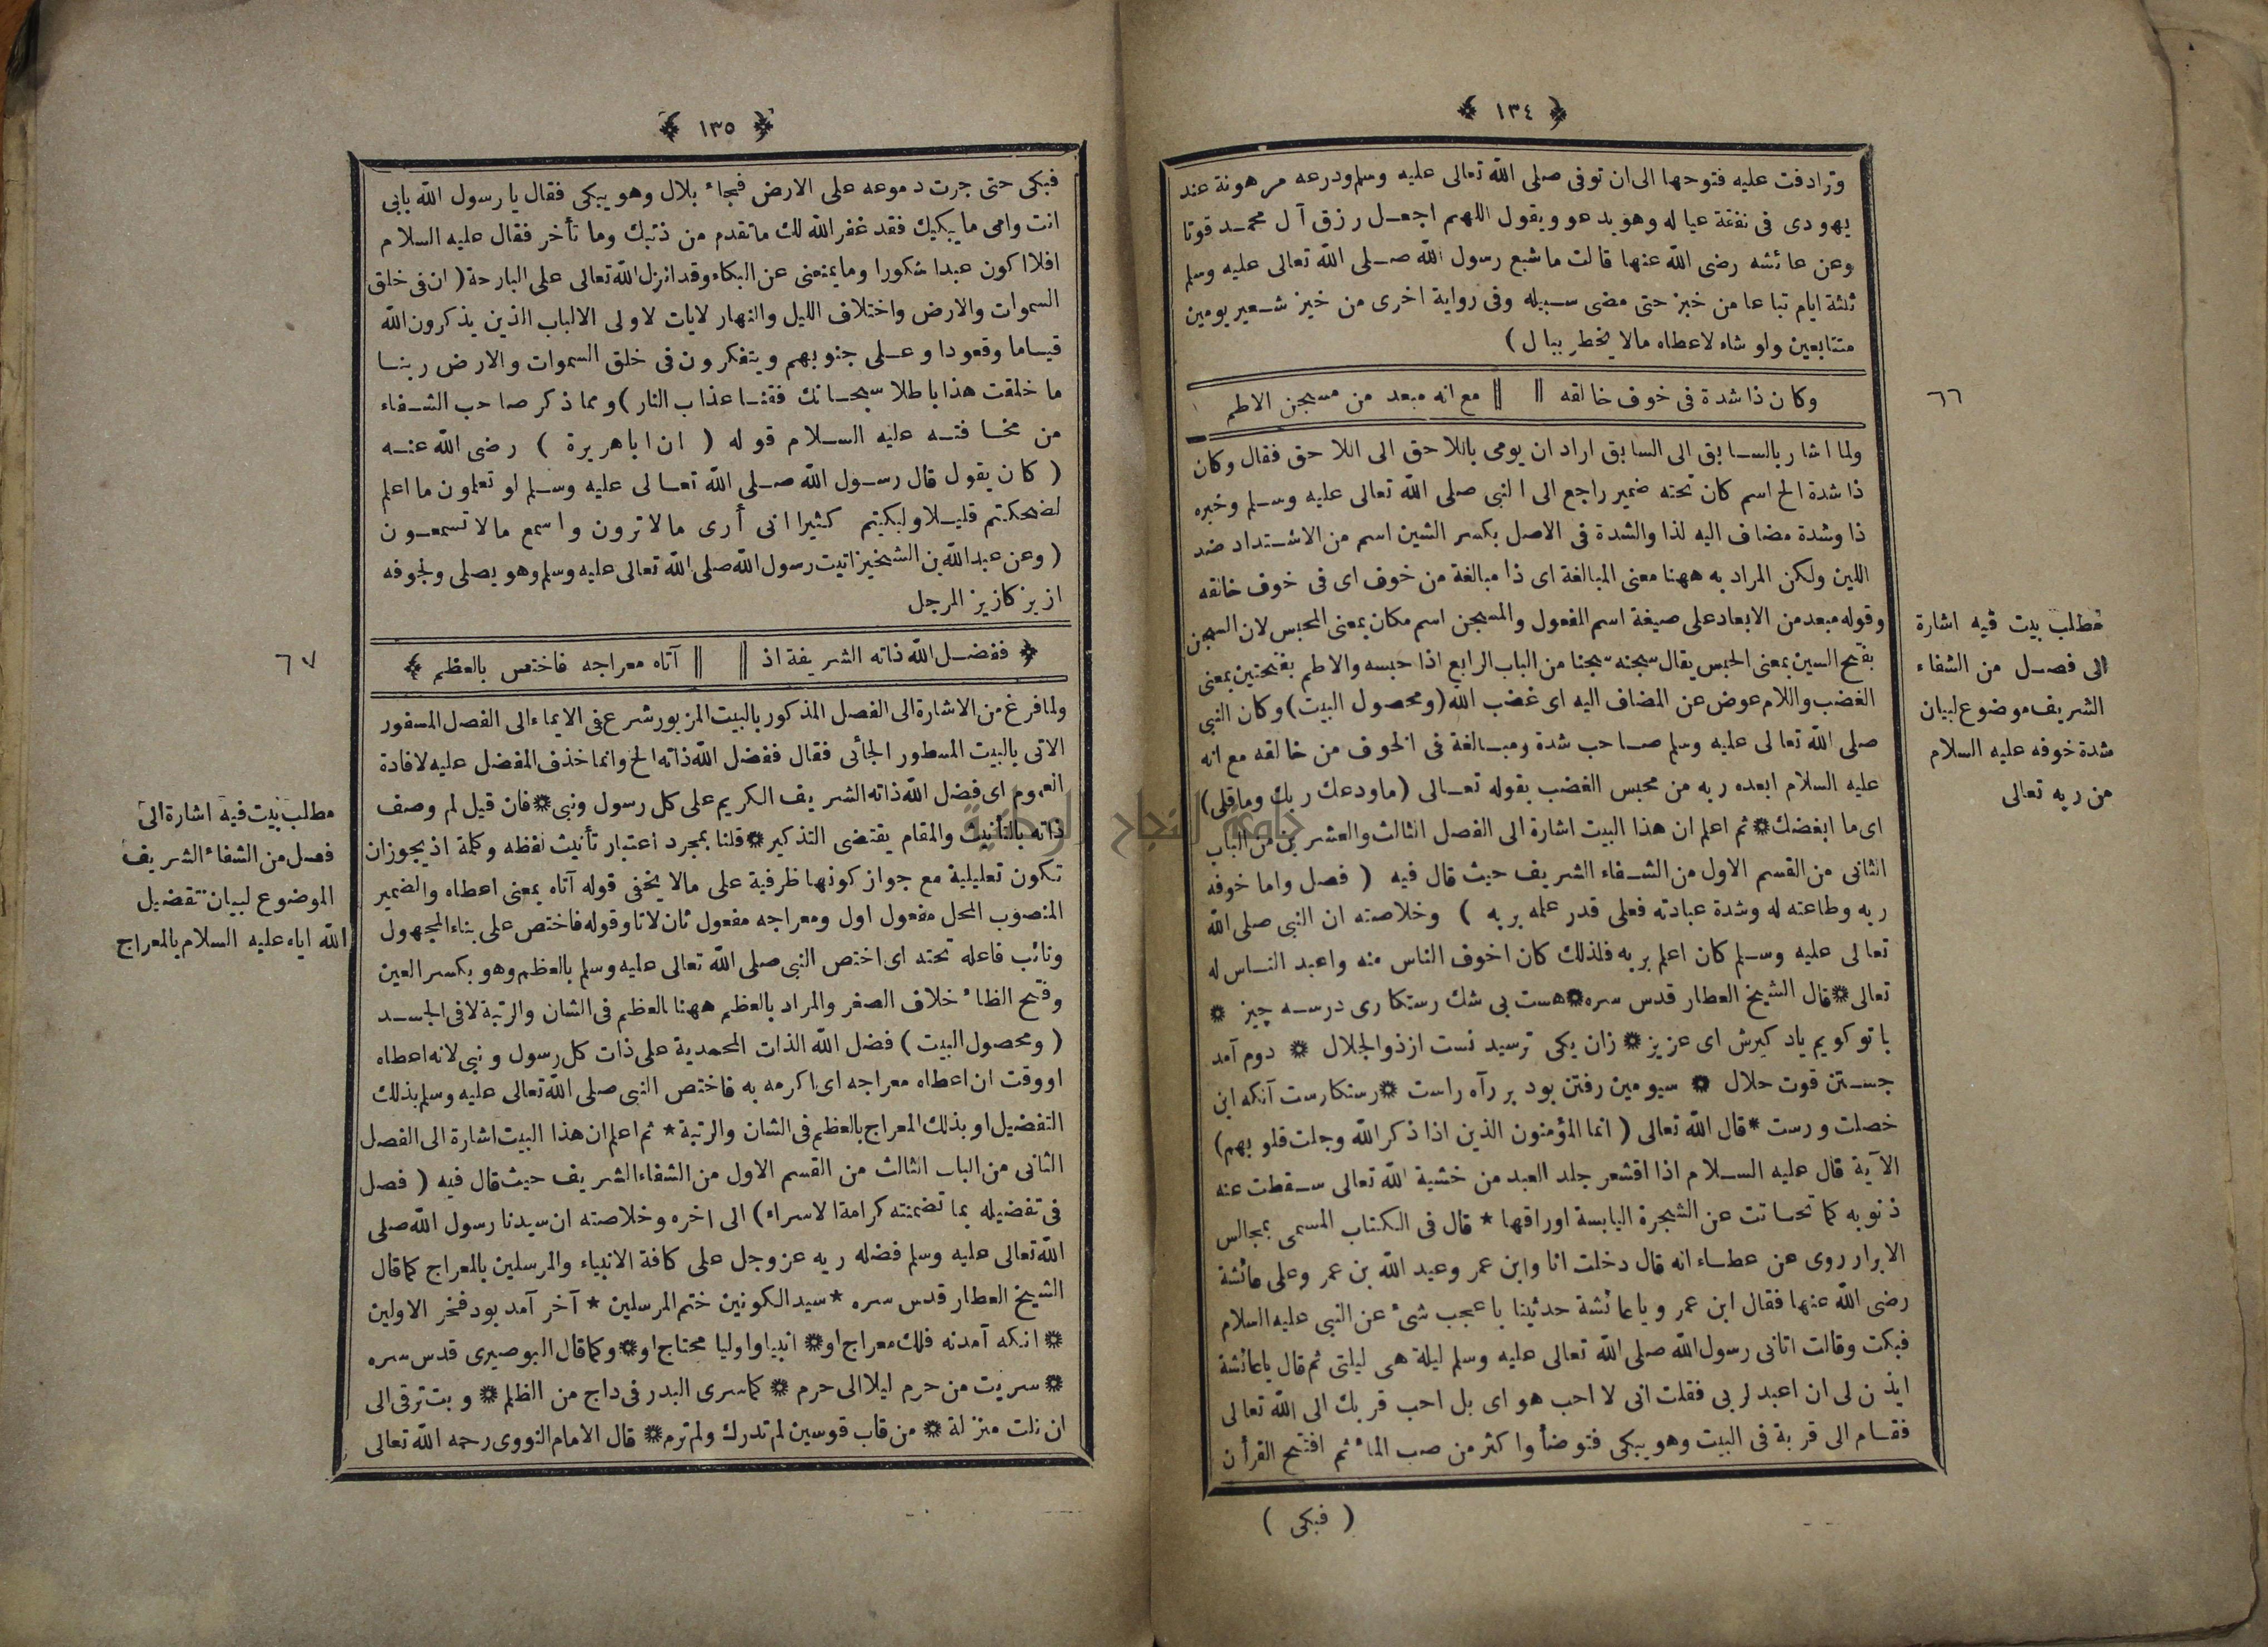 ﴿ ١٣٤ ﴾
وترادفت عليه فتوحها الى ان توفى صلى الله تعالى عليه وسلم ودرعه مرهونة عند
يهودى فى نفقة عياله وهو يدعو ويقول اللهم اجعل رزق آل محمد قوتا
وعن عائشه رضى الله عنها قالت ماشبع رسول الله صلى الله تعالى عليه وسلم
ثلثة ايام تباعا من خبز حتى مضى سبيله وفى رواية اخرى من خبز شعير يومين
متتابعين ولو شاء لاعطاه مالا يخطر ببال )
٦٦
وكان ذا شدة فى خوف خالقه || || مع انه مبعد من مسجن الاطم
ولما اشار بالسابق الى السابق اراد ان يومى باللاحق الى اللاحق فقال وكان
ذا شدة الخ اسم كان تحته ضمير راجع الى النبى صلى الله تعالى عليه وسلم وخبره
ذا وشدة مضاف اليه لذا والشدة فى الاصل بكسر الشين اسم من الاشتداد ضد
اللين ولكن المراد به ههنا معنى المبالغة اى ذا مبالغة من خوف اى فى خوف خالقه
وقوله مبعد من الابعاد على صيغة اسم المفعول والمسجن اسم مكان بمعنى المحبس لان السجن
بفتح السين بمعنى الحبس يقال سجنه سجنا من الباب الرابع اذا حبسه والاطم بفتحتين بمعنى
الغضب واللام عوض عن المضاف اليه اى غضب الله ( ومحصول البيت ) وكان النبى
صلى الله تعالى عليه وسلم صاحب شدة ومبالغة فى الخوف من خالقه مع انه
عليه السلام ابعده ربه من محبس الغضب بقوله تعالى ( ماودعك ربك وماقلى )
اى ما ابغضك * ثم اعلم ان هذا البيت اشارة الى الفصل الثالث والعشرين من الباب
الثانى من القسم الاول من الشفاء الشريف حيث قال فيه ( فصل واما خوفه
ربه وطاعته له وشدة عبادته فعلى قدر علمه بربه ) وخلاصته ان النبى صلى الله
تعالى عليه وسلم كان اعلم بربه فلذلك كان اخوف الناس منه واعبد الناس له
تعالى * قال الشيخ العطار قدس سره * هست بى شك رستكارى درسه چيز *
باتو كويم ياد كيرش اى عزيز * زان يكى ترسيد نست ازذوالجلال * دوم آمد
جستن قوت حلال * سيومين رفتن بود بر راه راست * رستكارست آنكه اين
خصلت ورست * قال الله تعالى ( انما المؤمنون الذين اذا ذكر الله وجلت قلوبهم )
الآية قال عليه السلام اذا اقشعر جلد العبد من خشية الله تعالى سقطت عنه
ذنوبه كما تحاتت عن الشجرة اليابسة اوراقها * قال فى الكتاب المسمى بمجالس
الابرار روى عن عطاء انه قال دخلت انا وابن عمر وعبد الله بن عمر وعلى عائشة
رضى الله عنها فقال ابن عمر وياعائشة حدثينا باعجب شئ عن النبى عليه السلام
فبكت وقالت اتانى رسول الله صلى الله تعالى عليه وسلم ليلة هى ليلتى ثم قال ياعائشة
ايذن لى ان اعبد لربى فقلت انى لا احب هواى بل احب قربك الى الله تعالى
فقام الى قربة فى البيت وهو يبكى فتوضأ واكثر من صب الماء ثم افتتح القرأن
( فبكى )
مطلب بيت فيه اشارة
الى فصل من الشفاء
الشريف موضوع لبيان
شدة خوفه عليه السلام
من ربه تعالى
﴿ ١٣٥ ﴾
فبكى حتى جرت دموعه على الارض فجاء بلال وهو يبكى فقال يارسول الله بابى
انت وامى مايبكيك فقد غفر الله لك ماتقدم من ذنبك وما تأخر فقال عليه السلام
افلا اكون عبدا شكورا ومايمنعنى عن البكاء وقد انزل الله تعالى على البارحة ( ان فى خلق
السموات والارض واختلاف الليل والنهار لايات لاولى الالباب الذين يذكرون الله
قياما وقعودا وعلى جنوبهم ويتفكرون فى خلق السموات والارض ربنا
ما خلقت هذا باطلا سبحانك فقنا عذاب النار ) ومما ذكر صاحب الشفاء
من مخافته عليه السلام قوله ( ان اباهريرة ) رضى الله عنه
( كان يقول قال رسول الله صلى الله تعالى عليه وسلم لو تعلمون ما اعلم
لضحكتم قليلا ولبكيتم كثيرا انى أرى مالا ترون واسمع مالا تسمعون
( وعن عبد الله بن الشخيز اتيت رسول الله صلى الله تعالى عليه وسلم وهو يصلى ولجوفه
ازيز كازيز المرجل
٦٧
﴿ ففضل الله ذاته الشريفة اذ || || آتاه معراجه فاختص بالعظم ﴾
ولما فرغ من الاشارة الى الفصل المذكور بالبيت المزبور شرع فى الايماء الى الفصل المسفور
الاتى بالبيت المسطور الجائى فقال ففضل الله ذاته الخ وانما خذف المفضل عليه لافادة
العموم اى فضل الله ذاته الشريف الكريم على كل رسول ونبى * فان قيل لم وصف
ذاته بالتأنيث والمقام يقتضى التذكير * قلنا بمجرد اعتبار تأنيث لفظه وكلمة اذ يجوز ان
تكون تعليلية مع جواز كونها ظرفية على مالا يخفى قوله آتاه بمعنى اعطاه والضمير
المنصوب المحل مفعول اول ومعراجه مفعول ثان لاتا وقوله فاختص على بناء المجهول
ونائب فاعله تحته اى اختص النبى صلى الله تعالى عليه وسلم بالعظم وهو بكسر العين
وفتح الظاء خلاف الصغر والمراد بالعظم ههنا العظم فى الشان والرتبة لا فى الجسد
( ومحصول البيت ) فضل الله الذات المحمدية على ذات كل رسول ونبى لانه اعطاه
او وقت ان اعطاه معراجه اى اكرمه به فاختص النبى صلى الله تعالى عليه وسلم بذلك
التفضيل او بذلك المعراج بالعظم فى الشان والرتبة * ثم اعلم ان هذا البيت اشارة الى الفصل
الثانى من الباب الثالث من القسم الاول من الشفاء الشريف حيث قال فيه ( فصل
فى تفضيله بما تضمنته كرامة الاسراء ) الى اخره وخلاصته ان سيدنا رسول الله صلى
الله تعالى عليه وسلم فضله ربه عز وجل على كافة الانبياء والمرسلين بالمعراج كما قال
الشيخ العطار قدس سره * سيد الكونين ختم المرسلين * آخر آمد بود فخر الاولين
* انكه آمدنه فلك معراج او * انبيا واوليا محتاج او * وكما قال البوصيرى قدس سره
* سريت من حرم ليلا الى حرم * كما سرى البدر فى داج من الظلم * وبت ترقى الى
ان نلت منزلة * من قاب قوسين لم تدرك ولم ترم * قال الامام النووى رحمه الله تعالى
مطلب بيت فيه اشارة الى
فصل من الشفاء الشريف
الموضوع لبيان تفضيل
الله اياه عليه السلام بالمعراج